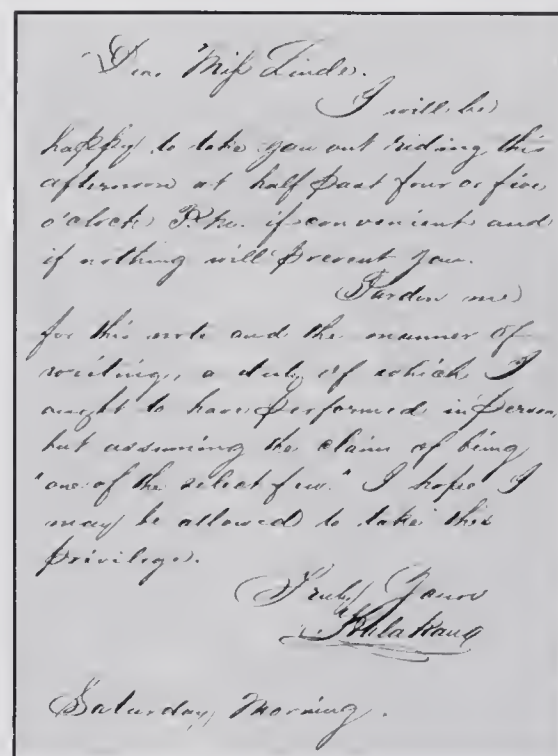 Dear Miss Linde.
I will be
happy to take you out riding this
afternoon at half past four or five
o'clock P.M. if convenient and
if nothing will prevent you.
Pardon me
for this note and the manner of
writing, a duty of which I
ought to have performed in person,
but assuming the claim of being
"one of the select few." I hope I
may be allowed to take this
privilege.
Truly Yours
Kalakaua
Saturday, Morning.